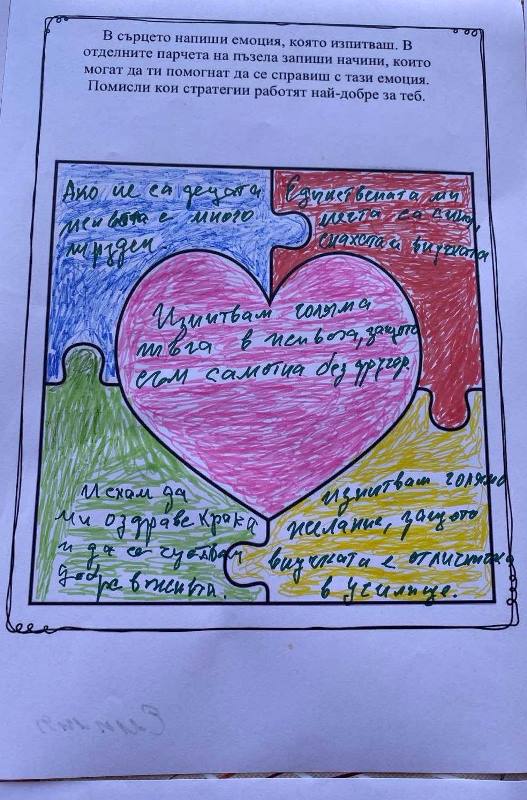 В сърцето напиши емоция, която изпитваш. В
отделните парчета на пъзела запиши начини, които
могат да ти помогнат да се справиш с тази емоция.
Помисли кои стратегии работят най-добре за теб.
Ако не са децата
живота е много
труден
Единствената ми
мечта са сина,
снахата и внучката
Изпитвам голяма
тъга в живота, защото
съм самотна без другар.
Искам да
ми оздравее крака
и да се чувствам
добре в живота.
Изпитвам голямо
желание, защото
внучката е отличничка
в училище.